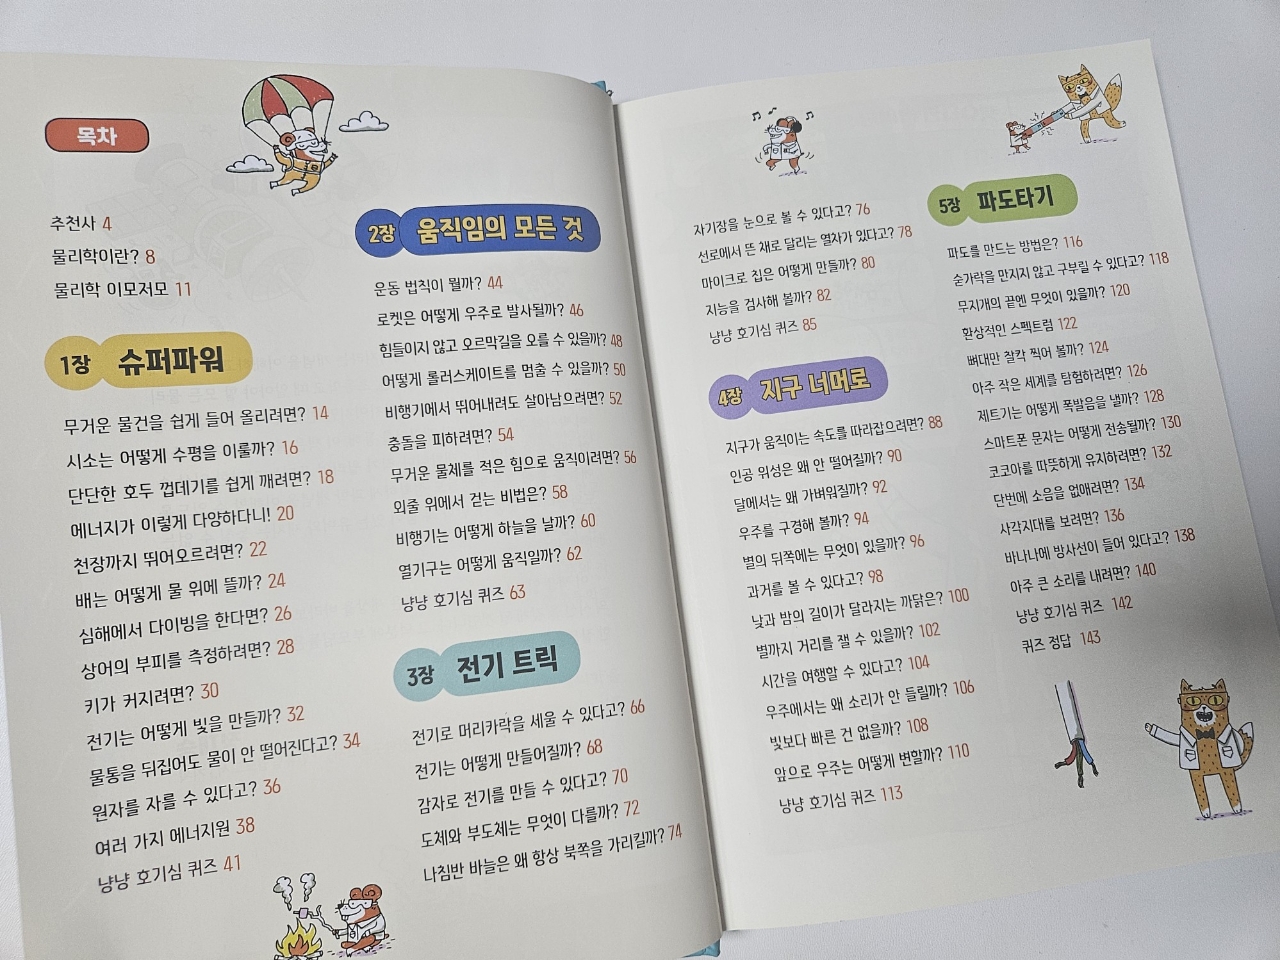 목차
추천사 4
물리학이란? 8
물리학 이모저모 11
1장 슈퍼파워
무거운 물건을 쉽게 들어 올리려면? 14
시소는 어떻게 수평을 이룰까? 16
단단한 호두 껍데기를 쉽게 깨려면? 18
에너지가 이렇게 다양하다니! 20
천장까지 뛰어오르려면? 22
배는 어떻게 물 위에 뜰까? 24
심해에서 다이빙을 한다면? 26
상어의 부피를 측정하려면? 28
키가 커지려면? 30
전기는 어떻게 빛을 만들까? 32
물통을 뒤집어도 물이 안 떨어진다고? 34
원자를 자를 수 있다고? 36
여러 가지 에너지원 38
냥냥 호기심 퀴즈 41
2장 움직임의 모든 것
운동 법칙이 뭘까? 44
로켓은 어떻게 우주로 발사될까? 46
힘들이지 않고 오르막길을 오를 수 있을까? 48
어떻게 롤러스케이트를 멈출 수 있을까? 50
비행기에서 뛰어내려도 살아남으려면? 52
충돌을 피하려면? 54
무거운 물체를 적은 힘으로 움직이려면? 56
외줄 위에서 걷는 비법은? 58
비행기는 어떻게 하늘을 날까? 60
열기구는 어떻게 움직일까? 62
냥냥 호기심 퀴즈 63
3장 전기 트릭
전기로 머리카락을 세울 수 있다고? 66
전기는 어떻게 만들어질까? 68
감자로 전기를 만들 수 있다고? 70
도체와 부도체는 무엇이 다를까? 72
나침반 바늘은 왜 항상 북쪽을 가리킬까? 74
자기장을 눈으로 볼 수 있다고? 76
선로에서 뜬 채로 달리는 열차가 있다고? 78
마이크로 칩은 어떻게 만들까? 80
지능을 검사해 볼까? 82
냥냥 호기심 퀴즈 85
4장 지구 너머로
지구가 움직이는 속도를 따라잡으려면? 88
인공 위성은 왜 안 떨어질까? 90
달에서는 왜 가벼워질까? 92
우주를 구경해 볼까? 94
별의 뒤쪽에는 무엇이 있을까? 96
과거를 볼 수 있다고? 98
낮과 밤의 길이가 달라지는 까닭은? 100
별까지 거리를 잴 수 있을까? 102
시간을 여행할 수 있다고? 104
우주에서는 왜 소리가 안 들릴까? 106
빛보다 빠른 건 없을까? 108
앞으로 우주는 어떻게 변할까? 110
냥냥 호기심 퀴즈 113
5장 파도타기
파도를 만드는 방법은? 116
숟가락을 만지지 않고 구부릴 수 있다고? 118
무지개의 끝엔 무엇이 있을까? 120
환상적인 스펙트럼 122
뼈대만 찰칵 찍어 볼까? 124
아주 작은 세계를 탐험하려면? 126
제트기는 어떻게 폭발음을 낼까? 128
스마트폰 문자는 어떻게 전송될까? 130
코코아를 따뜻하게 유지하려면? 132
단번에 소음을 없애려면? 134
사각지대를 보려면? 136
바나나에 방사선이 들어 있다고? 138
아주 큰 소리를 내려면? 140
냥냥 호기심 퀴즈 142
퀴즈 정답 143